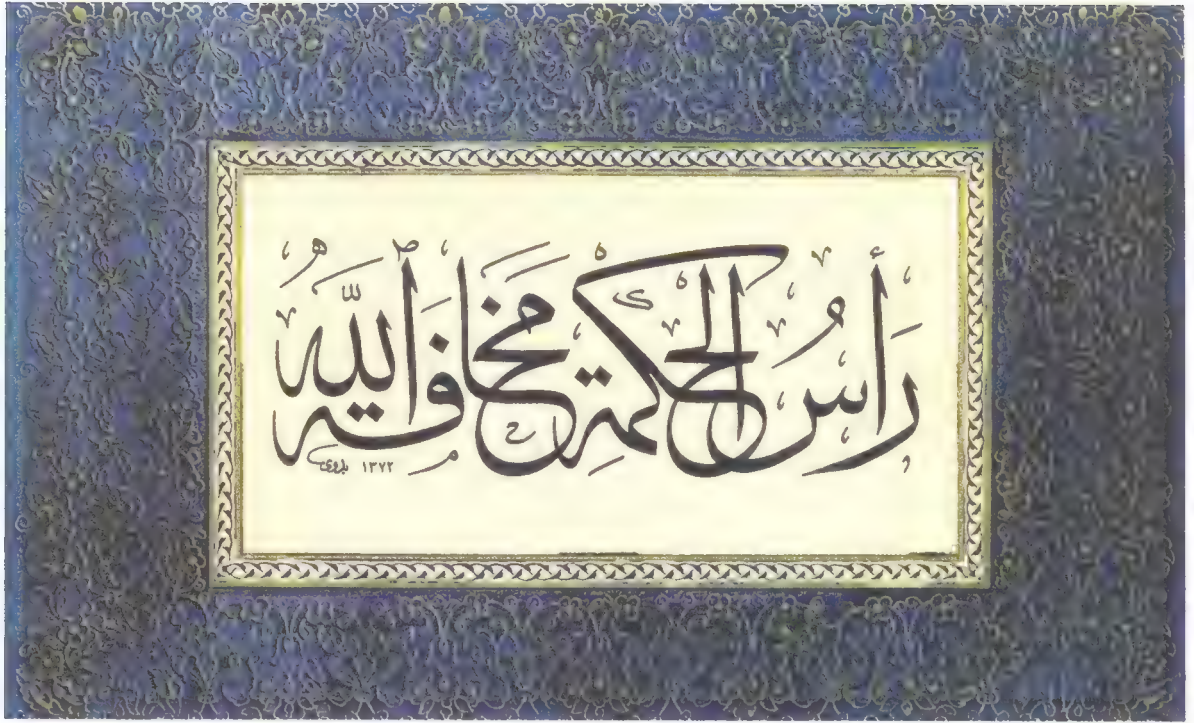 رَأْسُ الْحِكْمَةِ مَخَافَةُ ٱللَّهِ
بدوي ١٣٧٢